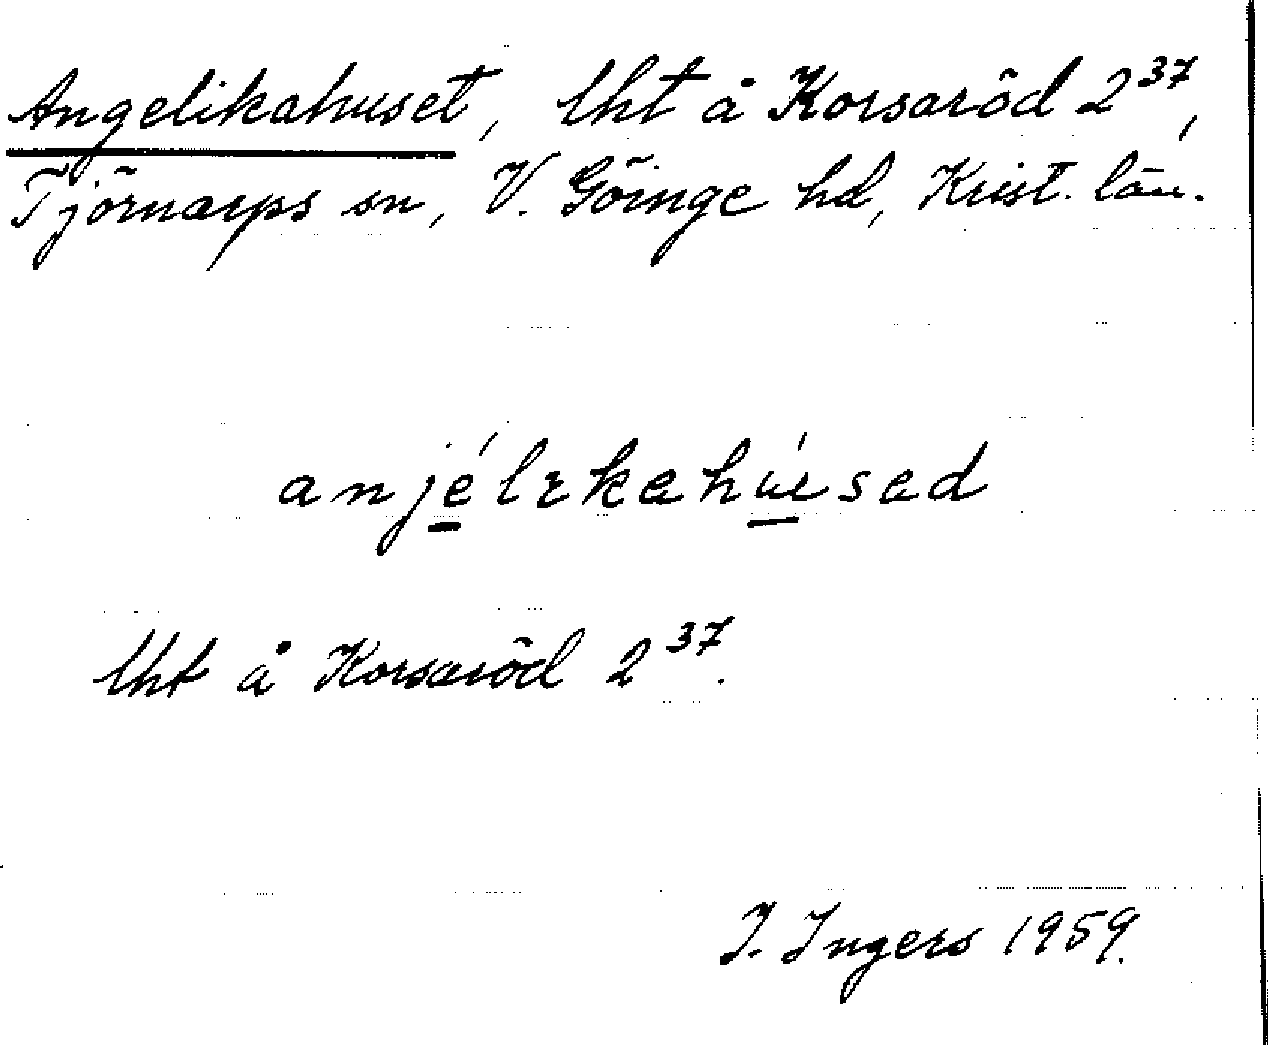 Angelikahuset, lht å Korsaröd 2³⁷,
Tjörnarps sn, V. Göinge hd, Krist. län.
anjélekahúsed
lht å Korsaröd 2³⁷.
I. Ingers 1959.